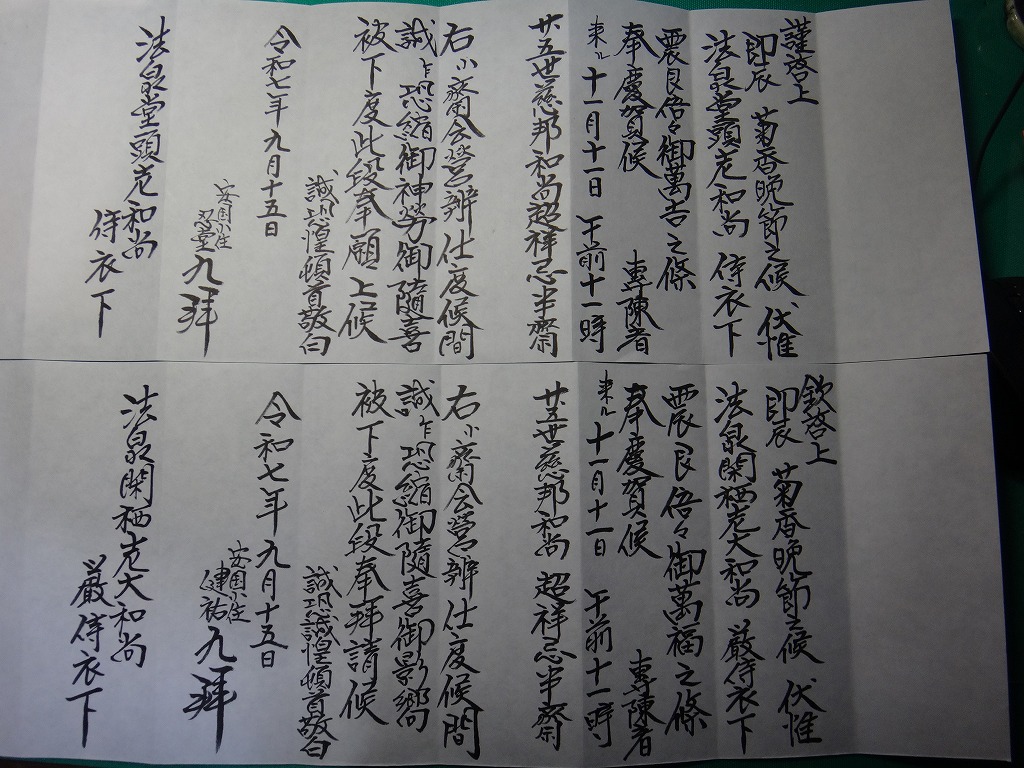 謹啓上
即辰 菊香晩節之候 伏惟
法泉堂頭老和尚 侍衣下
震艮倍々御萬吉之條
奉慶賀候 專陳者
来ル十一月十一日 午前十一時
廿五世慈邦和尚超祥忌半齋
右小齋会営辨仕度候間
誠ニ恐縮御神労御隨喜
被下度此段奉願上候
誠恐誠惶頓首敬白
令和七年九月十五日
安国小住
九拜
法泉堂頭老和尚
侍衣下
欽啓上
即辰 菊香晩節之候 伏惟
法泉閑栖老大和尚 厳侍衣下
震艮倍々御萬福之條
奉慶賀候 專陳者
来ル十一月十一日 午前十一時
廿五世慈邦和尚 超祥忌半齋
右小齋会営辨仕度候間
誠ニ恐縮御隨喜御影嚮
被下度此段奉拜請候
誠恐誠惶頓首敬白
令和七年九月十五日
安国小住
建祐 九拜
法泉閑栖老大和尚
厳侍衣下